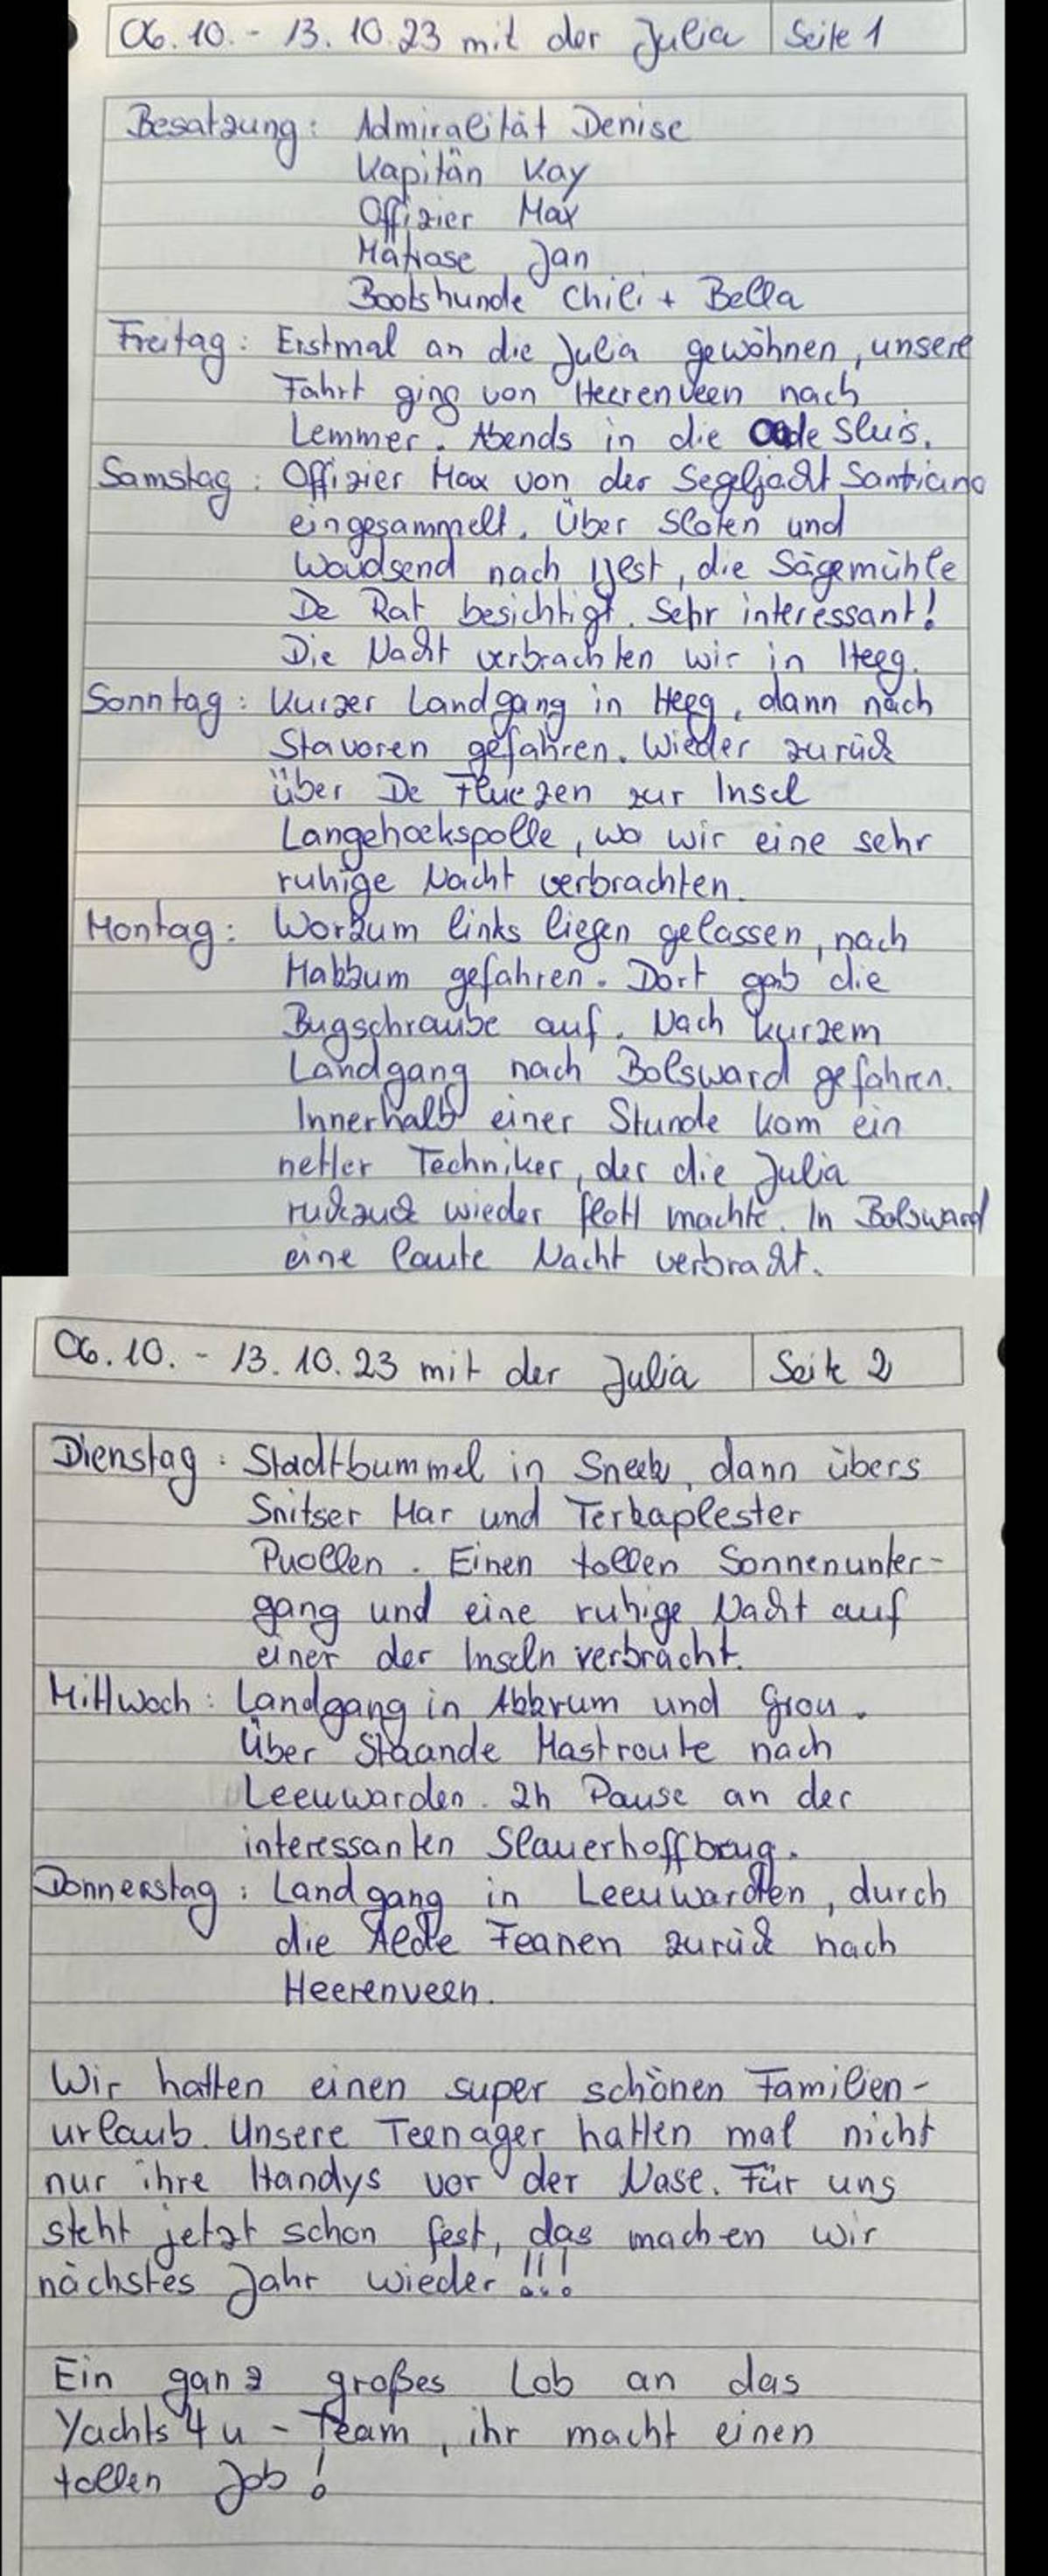 06.10. - 13.10.23 mit der Julia Seite 1
Besatzung: Admiralität Denise
Kapitän Kay
Offizier Max
Matrose Jan
Bootshunde Chili + Bella
Freitag: Erstmal an die Julia gewöhnen, unsere
Fahrt ging von Heerenveen nach
Lemmer. Abends in die Oude Sluis.
Samstag: Offizier Max von der Segeljacht Santiano
eingesammelt. Über Sloten und
Woudsend nach Ijest, die Sägemühle
De Rat besichtigt. Sehr interessant!
Die Nacht verbrachten wir in Heeg.
Sonntag: Kurzer Landgang in Heeg, dann nach
Stavoren gefahren. Wieder zurück
über De Fluezen zur Insel
Langehoekspolle, wo wir eine sehr
ruhige Nacht verbrachten.
Montag: Workum links liegen gelassen, nach
Makkum gefahren. Dort gab die
Bugschraube auf. Nach kurzem
Landgang nach Bolsward gefahren.
Innerhalb einer Stunde kam ein
netter Techniker, der die Julia
ruckzuck wieder flott machte. In Bolsward
eine laute Nacht verbracht.
06.10. - 13.10.23 mit der Julia Seite 2
Dienstag: Stadtbummel in Sneek, dann übers
Snitser Mar und Terkaplester
Puollen. Einen tollen Sonnenunter-
gang und eine ruhige Nacht auf
einer der Inseln verbracht.
Mittwoch: Landgang in Akkrum und Grou.
Über Staande Mastroute nach
Leeuwarden. 2h Pause an der
interessanten Slauerhoffbrug.
Donnerstag: Landgang in Leeuwarden, durch
die Alde Feanen zurück nach
Heerenveen.
Wir hatten einen super schönen Familien-
urlaub. Unsere Teenager hatten mal nicht
nur ihre Handys vor der Nase. Für uns
steht jetzt schon fest, das machen wir
nächstes Jahr wieder!!!
Ein ganz großes Lob an das
Yachts4u - Team, ihr macht einen
tollen Job!